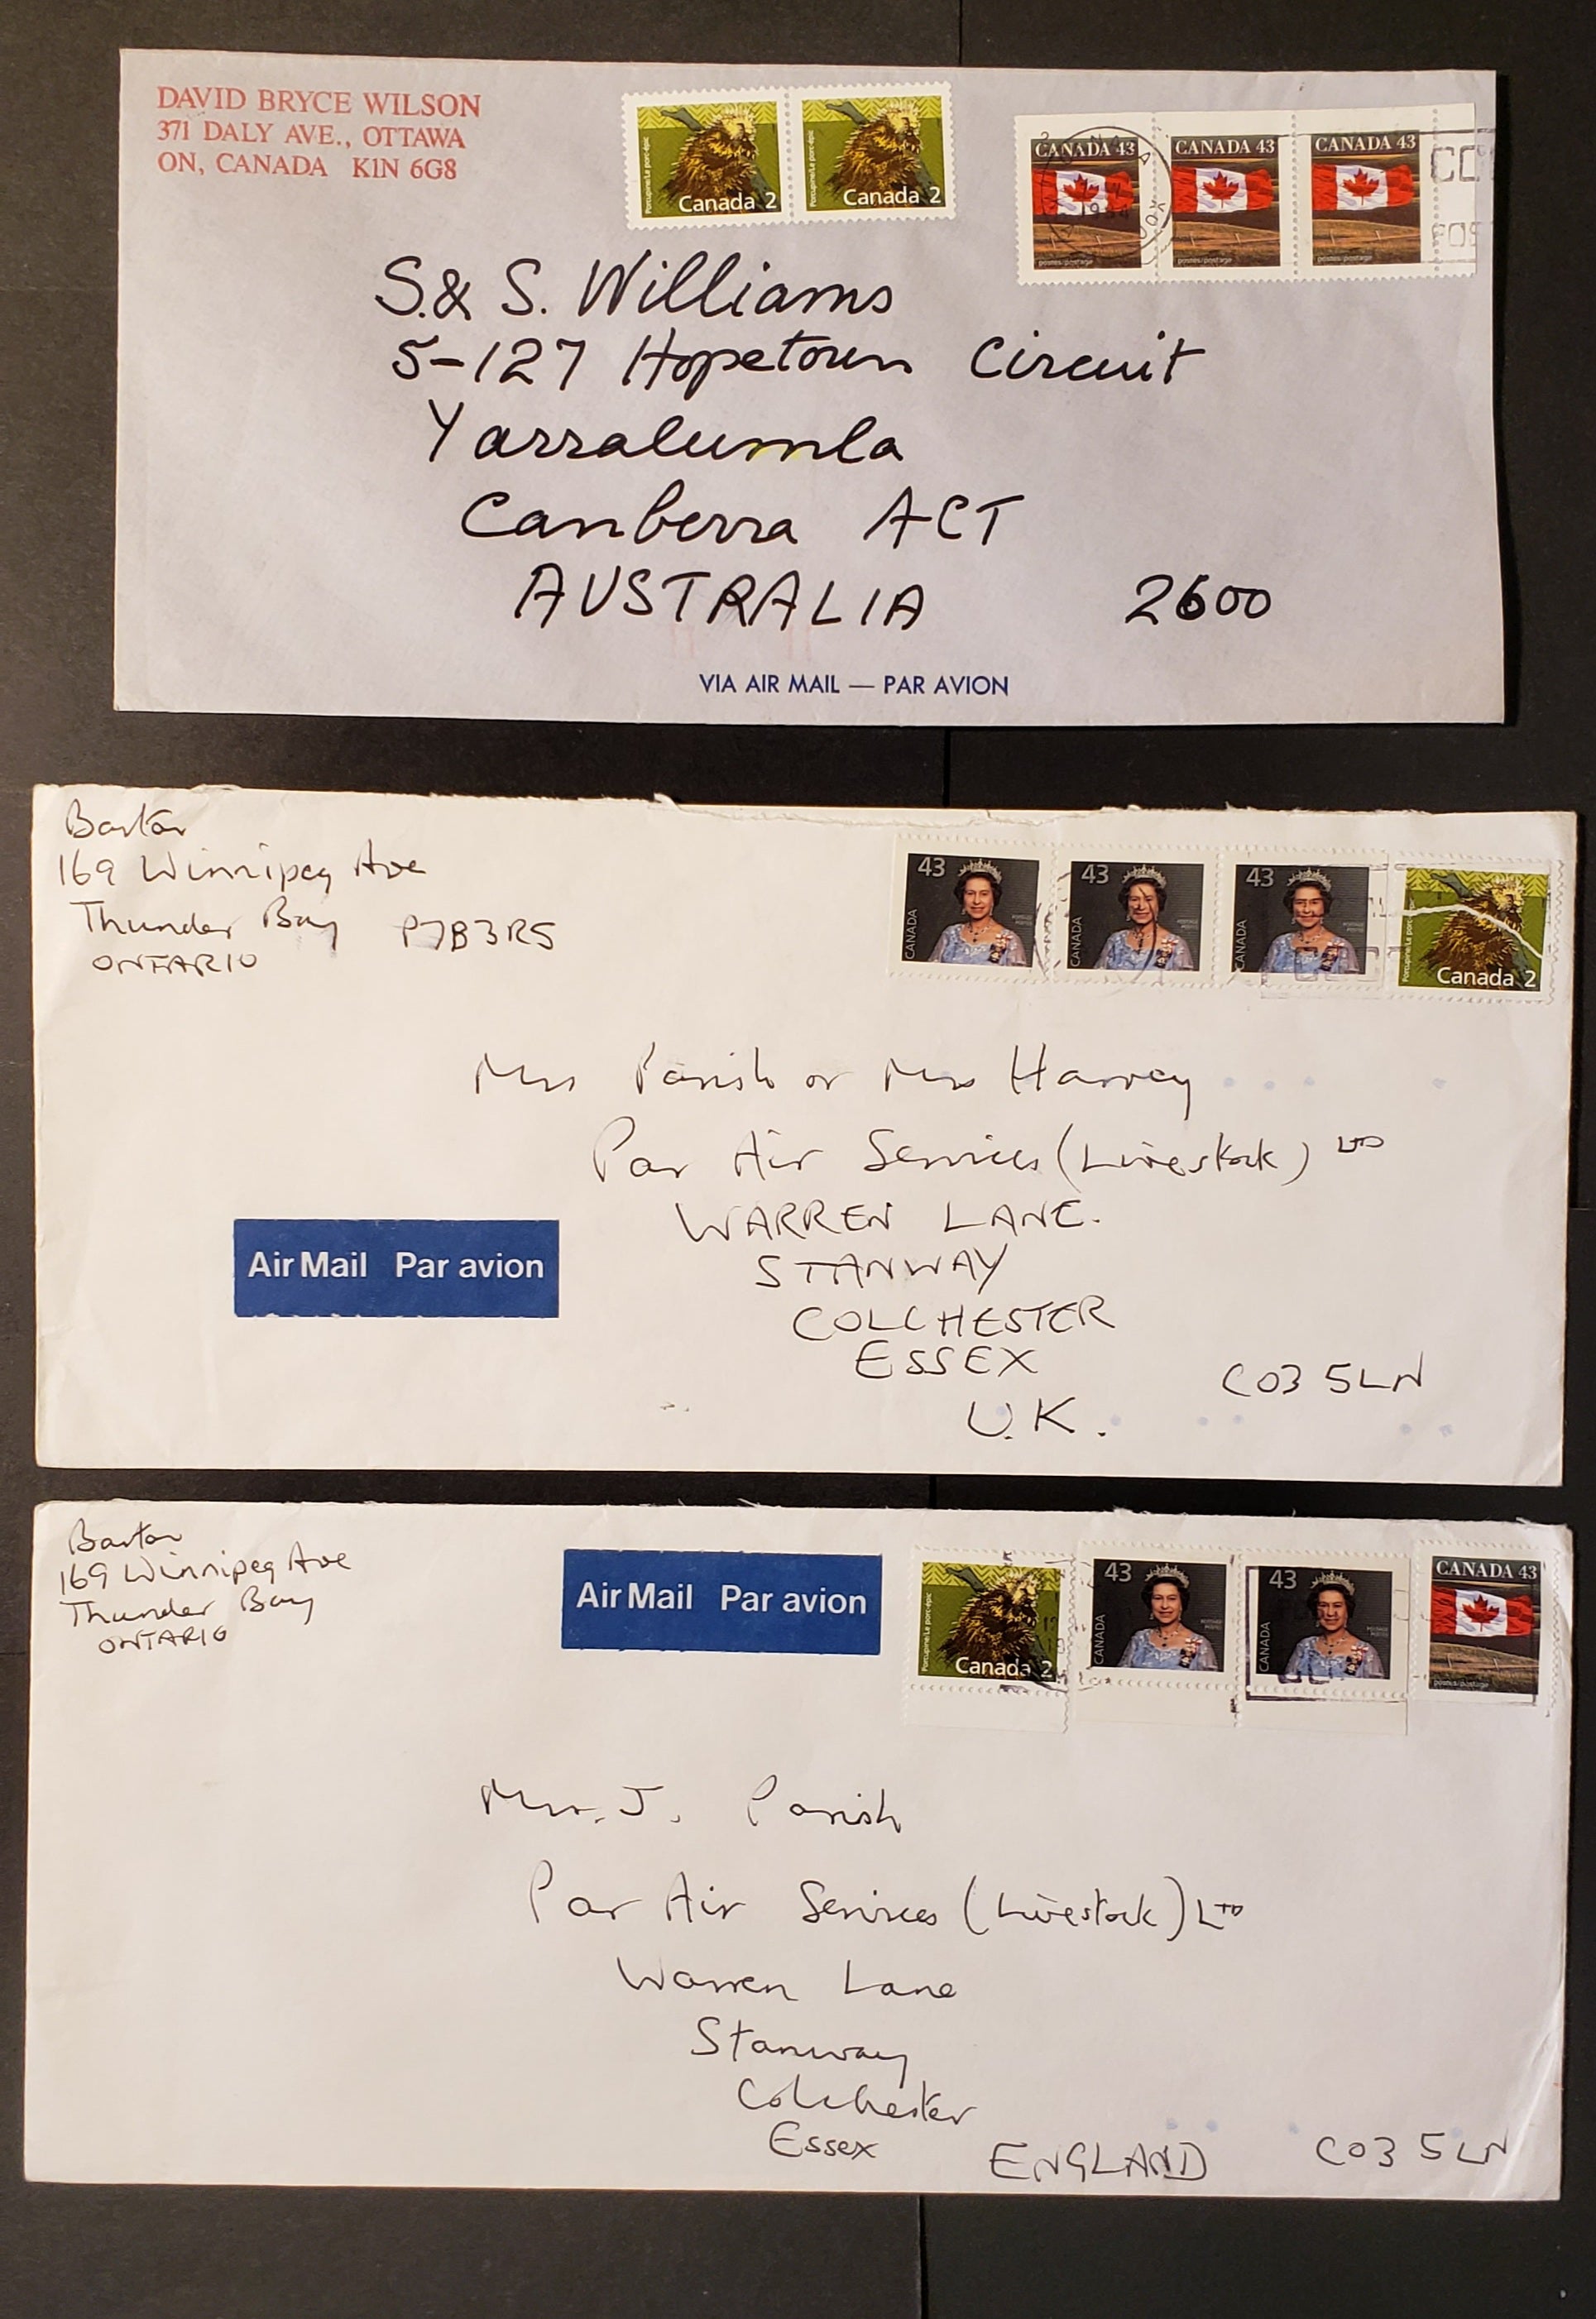 DAVID BRYCE WILSON
371 DALY AVE., OTTAWA
ON, CANADA K1N 6G8
Porcupine/Le porc-épic
Canada 2
Porcupine/Le porc-épic
Canada 2
CANADA 43
postes/postage
CANADA 43
postes/postage
CANADA 43
postes/postage
S.& S. Williams
5-127 Hopetown Circuit
Yarralumla
Canberra ACT
AUSTRALIA 2600
VIA AIR MAIL — PAR AVION
169 Winnipeg Ave
Thunder Bay P7B3R5
ONTARIO
43
CANADA
43
CANADA
43
CANADA
Porcupine/Le porc-épic
Canada 2
Mrs Parish or Mrs Harvey
Par Air Services (Livestock) LTD
WARREN LANE.
STANWAY
COLCHESTER
ESSEX
CO3 5LN
U.K.
Air Mail Par avion
169 Winnipeg Ave
Thunder Bay
ONTARIO
Air Mail Par avion
Porcupine/Le porc-épic
Canada 2
43
CANADA
43
CANADA
CANADA 43
postes/postage
Mrs. J. Parish
Par Air Services (Livestock) LTD
Warren Lane
Stanway
Colchester
Essex
ENGLAND CO3 5LN